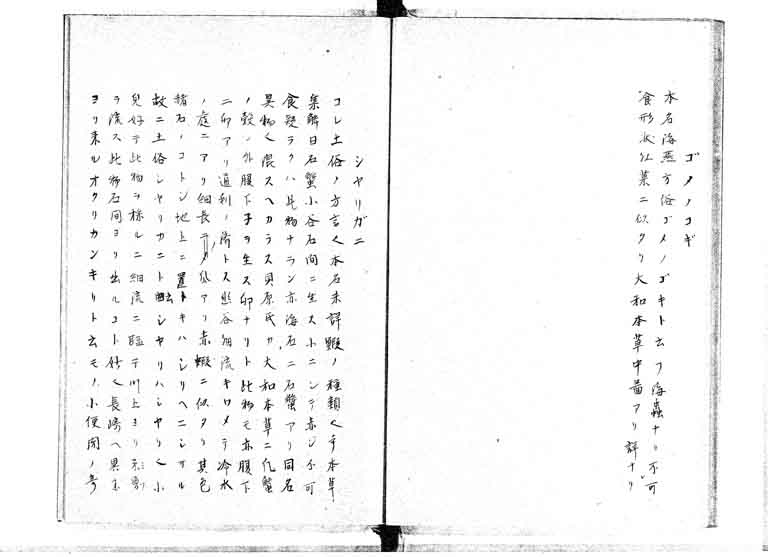 ゴメノコギ
本名海燕方俗ゴメノゴキト云フ海蟲ナリ不可
食形状仏菓ニ似タリ大和本草中ニアリ詳ナリ
シヤリガニ
コレ土俗ノ方言也本名未詳蝦ノ種類也本草
集解曰石蟹小谷石間ニ生ストニシテ赤シ不可
食疑ラクハ此物ナラン亦海石ニ石蟹アリ同名
異物也混スヘカラス貝原氏カ大和本草ニ化蟹
ノ殻ノ外腹下子ヲ生ス卵ナリト此物モ亦腹下
ニ卵アリ通利ノ済トス熊谷細流キワメテ冷水
ノ庭ニアリ細長ニメ爪アリ赤蝦ニ似タリ其色
石ノコトシ地上ニ置トキハシリヘニシサル
故ニ土俗シヤリカニト云シヤリハシヤリ也小
兒好テ此物ヲ採ルニ細流ニ臨テ川上ヨリ
ヲ流ス此物石間ヨリ出ルコト妙也長崎ヘ異国
ヨリ来ルオクリカンキリト云モノ小便閉ノ奇